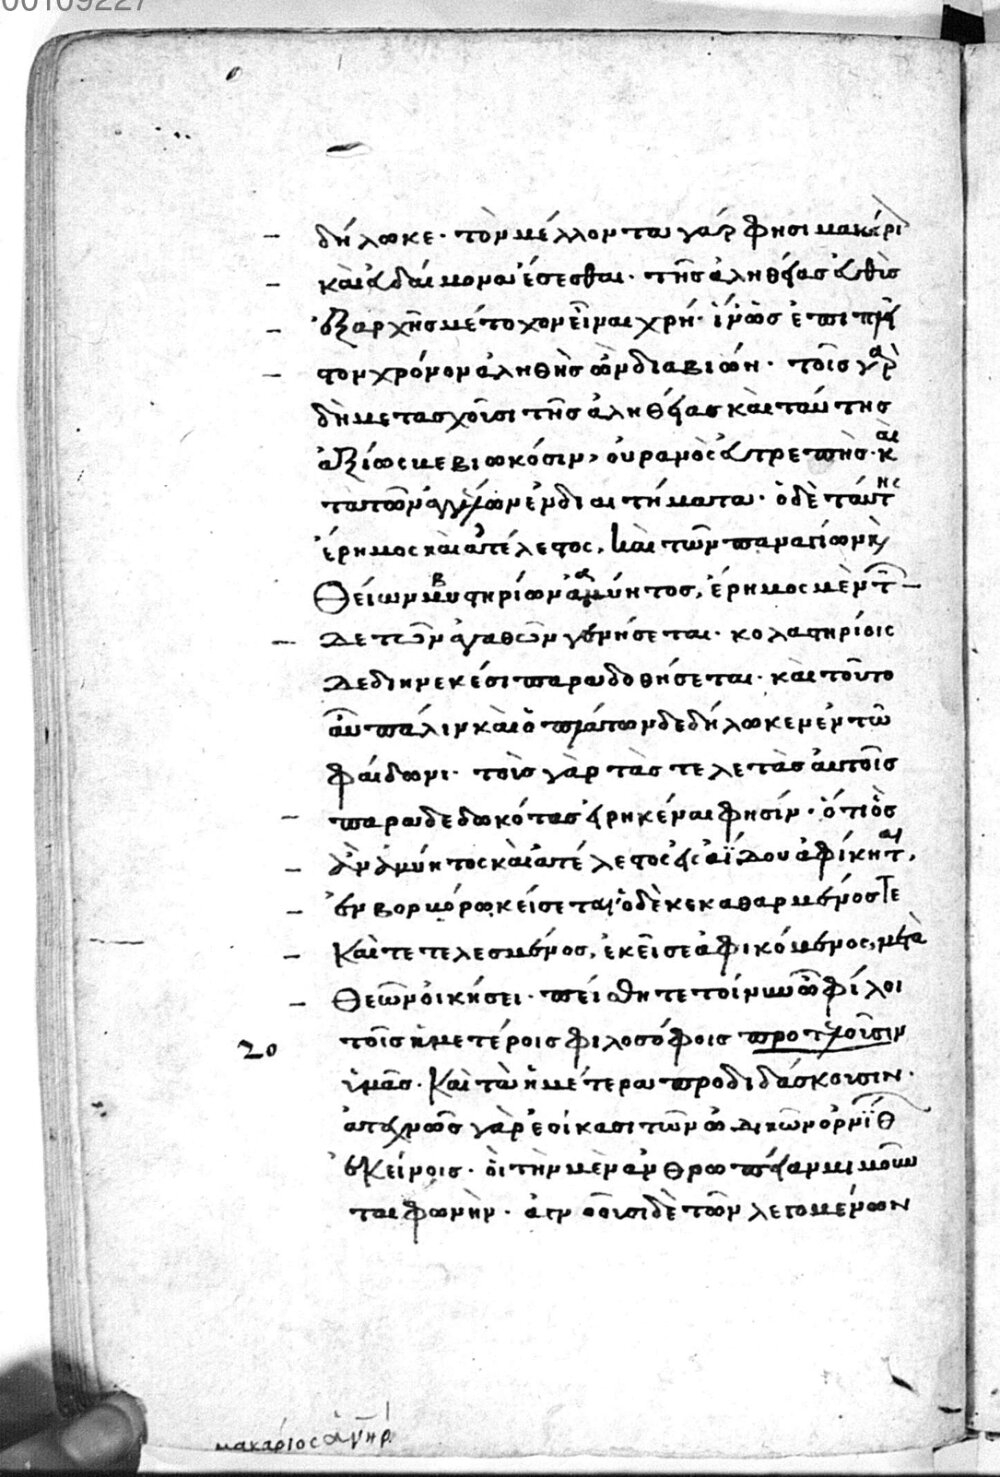 00109227
δήλωκε· τὸν μέλλοντα γάρ φησι μακάρι
καὶ εὐδαίμονα ἔσεσθαι· τῆς ἀληθείας εὐθὺς
ἐξ ἀρχῆς μέτοχον εἶναι χρή· ἵν' ὡς ἐπὶ πλεῖ
στον χρόνον ἀληθὴς ὢν διαβιώη· τοῖς γὰρ
δὴ μετασχοῦσι τῆς ἀληθείας καὶ ταύτης
ἀξίως βεβιωκόσιν, οὐρανὸς εὐτρεπὴς· καὶ
τὰ τῶν ἀγγέλων ἐνδιαιτήματα· ὁ δὲ ταύτης
ἔρημος καὶ ἀτέλεστος, καὶ τῶν παναγίων κ
θείων μυστηρίων ἀμύητος, ἔρημος μὲν τ
δε τῶν ἀγαθῶν γενήσεται· κολαστηρίοις
δε διηνεκέσι παραδοθήσεται· καὶ τοῦτο
αὖ πάλιν καὶ ὁ πλάτων δεδήλωκεν ἐν τῶ
φαίδωνι· τοὺς γὰρ τὰς τελετὰς αὐτοῖς
παραδεδωκότας εἰρηκέναι φησίν· ὅτι ὃς
ἂν ἀμύητος καὶ ἀτέλεστος εἰς ἅϊδου ἀφίκηται,
ἐν βορβόρω κείσεται· ὁ δὲ κεκαθαρμένος τε
καὶ τετελεσμένος, ἐκεῖσε ἀφικόμενος, μετὰ
θεῶν οἰκήσει· πείθητε τοίνυν ὦ φίλοι
20 τοῖς ἡμετέροις φιλοσόφοις προτελοῦσιν
ὑμᾶς· καὶ τὰ ἡμέτερα προδιδάσκουσιν·
ἀτεχνῶς γὰρ ἐοίκασι τῶν ὠδικῶν ὀρνίθ
ἐκείνοις· οἳ τὴν μὲν ἀνθρωπείαν μιμοῦν
ται φωνὴν· ἀγνοοῦσι δὲ τῶν λεγομένων
μακάριος ἀνὴρ